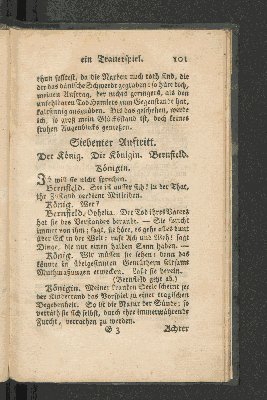 ein Trauerspiel. 101
thun solltest, da die Narben noch roth sind, die
der das dänische Schwerdt gegraben: so höre dich,
meinen Auftrag, der nichts geringers, als den
unfehlbaren Tod Hamlets zum Gegenstande hat,
kaltsinnig auszuüben. Bis das geschehen, werde
ich, so groß mein Glücksstand ist, doch keines
frohen Augenblicks genießen.
Siebenter Auftritt.
Der König. Die Königin. Bernfield.
Königin.
Ich will sie nicht sprechen.
Bernfield. Sie ist ausser sich! in der That,
ihr Zustand verdient Mitleiden.
König. Wer?
Bernfield. Ophelia. Der Tod ihres Vaters
hat sie des Verstandes beraubt. — Sie spricht
immer von ihm; sagt, sie höre, es gehe alles bunt
über Eck in der Welt; ruft Ach und Weh! sagt
Dinge, die nur einen halben Sinn haben. —
König. Wir müssen sie sehen; denn das
könnte in übelgesinnten Gemüthern seltsame
Muthmaßungen erwecken. Laßt sie herein.
(Bernfield geht ab.)
Königin. Meiner kranken Seele scheint je-
der Kindertand das Vorspiel zu einer tragischen
Begebenheit. So ist die Natur der Sünde; so
verräth sie sich selbst, durch ihre immerwährende
Furcht, verrathen zu werden.
G 3 Achter